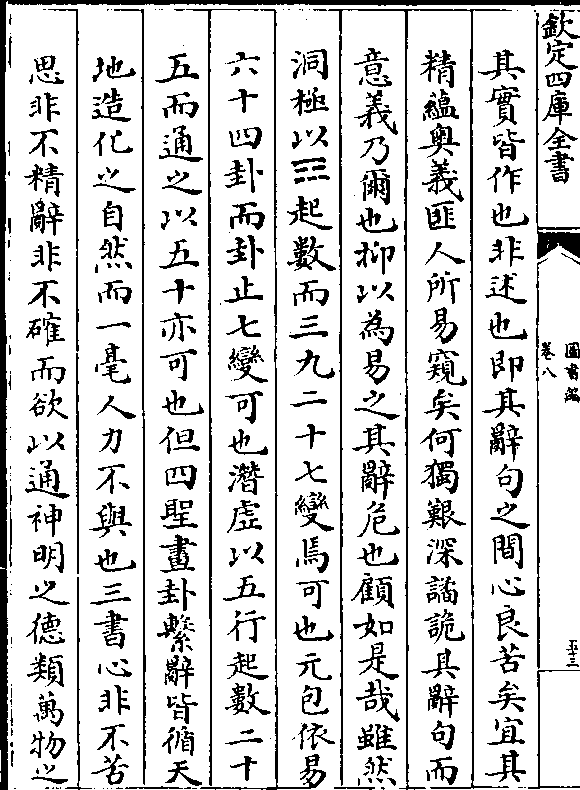 欽定四庫全書
圖書編
卷八
五十三
其實皆作也非述也即其辭句之間心良苦矣宜其
精蘊奧義匪人所易窺矣何獨艱深譎詭其辭句而
意義乃爾也抑以為易之其辭危也顧如是哉雖然
洞極以☷起數而三九二十七變焉可也元包依易
六十四卦而卦止七變可也潛虛以五行起數二十
五而通之以五十亦可也但四聖畫卦繫辭皆循天
地造化之自然而一毫人力不與也三書心非不苦
思非不精辭非不確而欲以通神明之德類萬物之